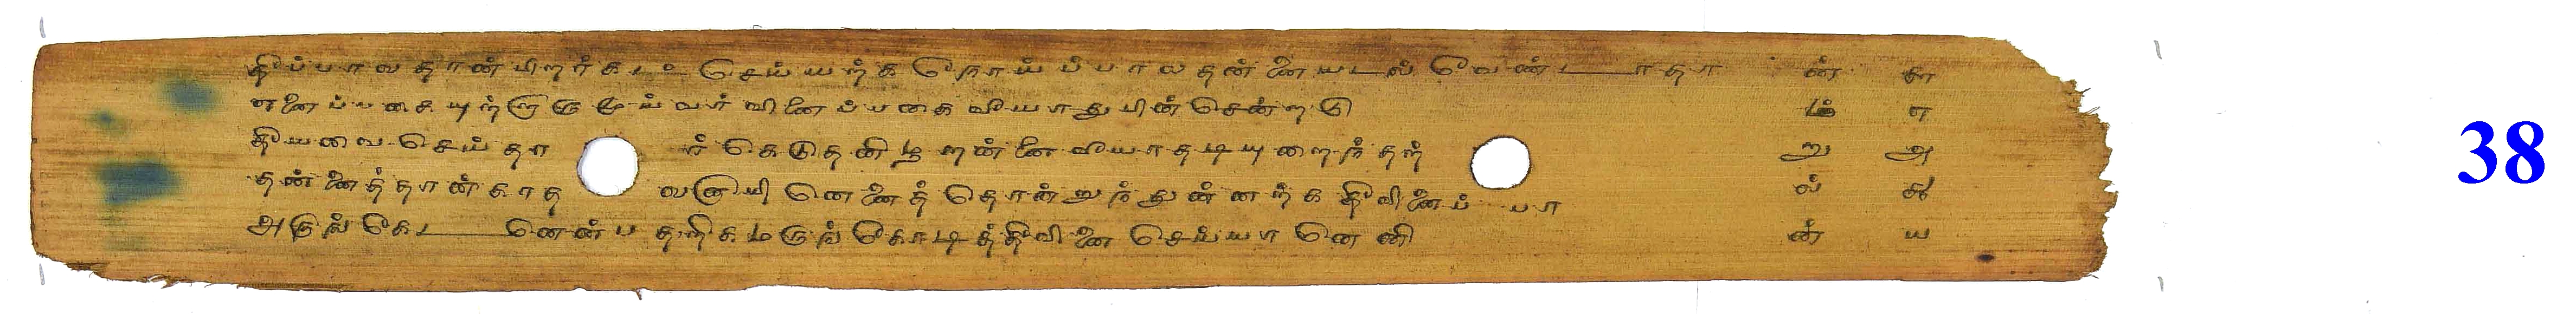 தீப்பாலதான்பிறர்கட் செய்யற்க நோய்ப்பாலதன்னையடல் வேண்டாதா ன் சு
எனைப்பகையுற்றாருமுய்வர் வினைப்பகை வீயாதுபின்சென்றடு ம் எ
தீயவை செய்தா ர் கெடுதனிழறன்னை வீயாதடியுறைந்தற் று அ
தன்னைத்தான்காத லனாயி னெனைத் தொன்றுந்துன்னற்க தீவினைப் பா ல் கூ
அருங் கேட னென்ப தறிகமருங் கோடித்தீவினை செய்யா னெனி ன் ய
38